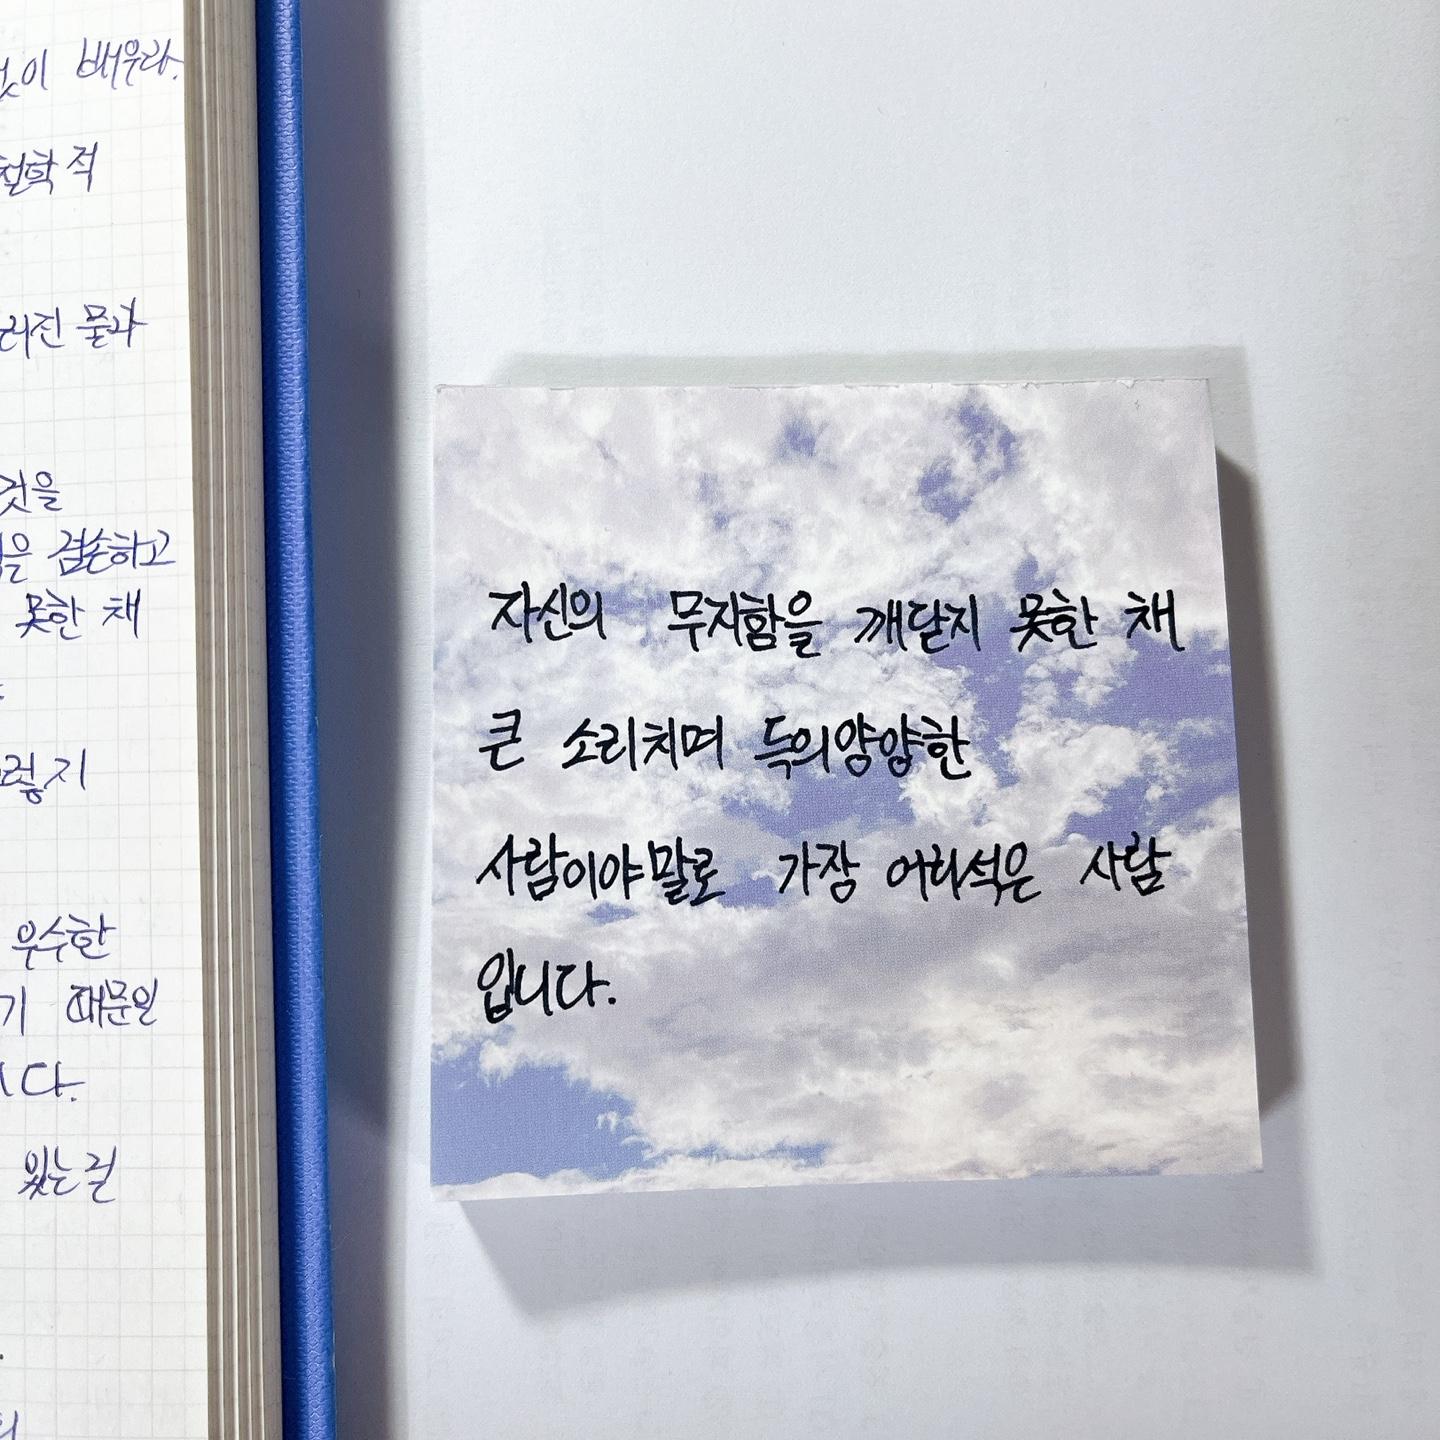 배우라.
철학적
물과
것을
겸손하고
못한 채
우수한
때문일
있는 걸
자신의 무지함을 깨닫지 못한 채
큰 소리치며 득의양양한
사람이야말로 가장 어리석은 사람
입니다.